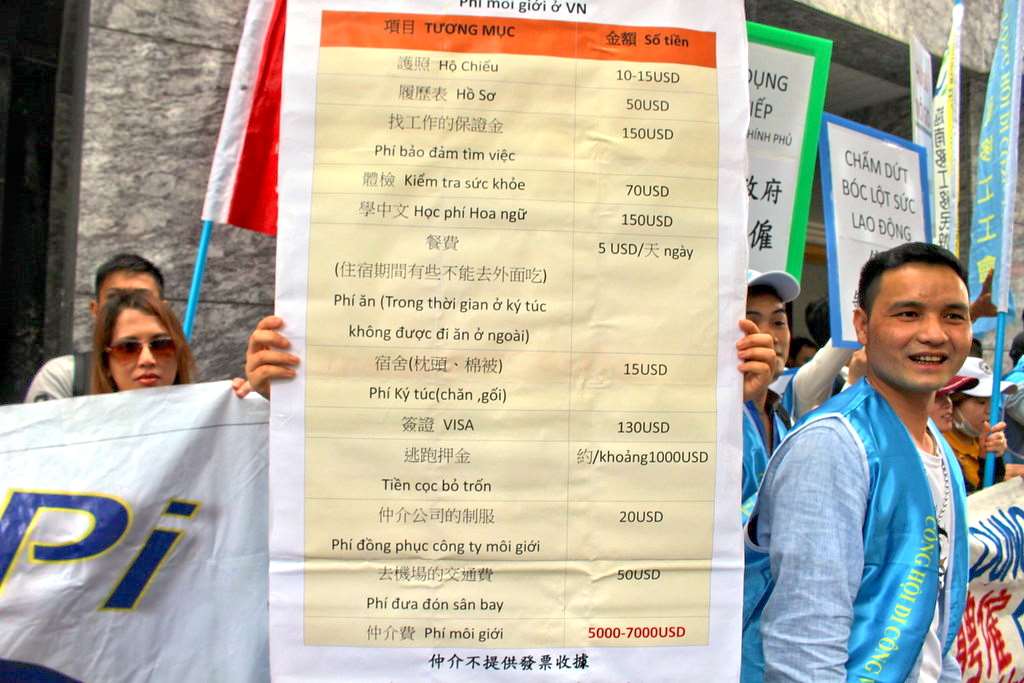 Phí môi giới ở VN
項目 TƯƠNG MỤC 金額 Số tiền
護照 Hộ Chiếu 10-15USD
履歷表 Hồ Sơ 50USD
找工作的保證金 150USD
Phí bảo đảm tìm việc
體檢 Kiểm tra sức khỏe 70USD
學中文 Học phí Hoa ngữ 150USD
餐費 5 USD/天 ngày
(住宿期間有些不能去外面吃)
Phí ăn (Trong thời gian ở ký túc
không được đi ăn ở ngoài)
宿舍(枕頭、棉被) 15USD
Phí Ký túc(chăn ,gối)
簽證 VISA 130USD
逃跑押金 約/khoảng1000USD
Tiền cọc bỏ trốn
仲介公司的制服 20USD
Phí đồng phục công ty môi giới
去機場的交通費 50USD
Phí đưa đón sân bay
仲介費 Phí môi giới 5000-7000USD
仲介不提供發票收據
DỤNG
IẾP
HÍNH PHỦ
政府
僱
CHẤM DỨT
BÓC LỘT SỨC
LAO ĐỘNG
Pi
CÔNG HỘI DI CÔNG
DỤNG
聘僱